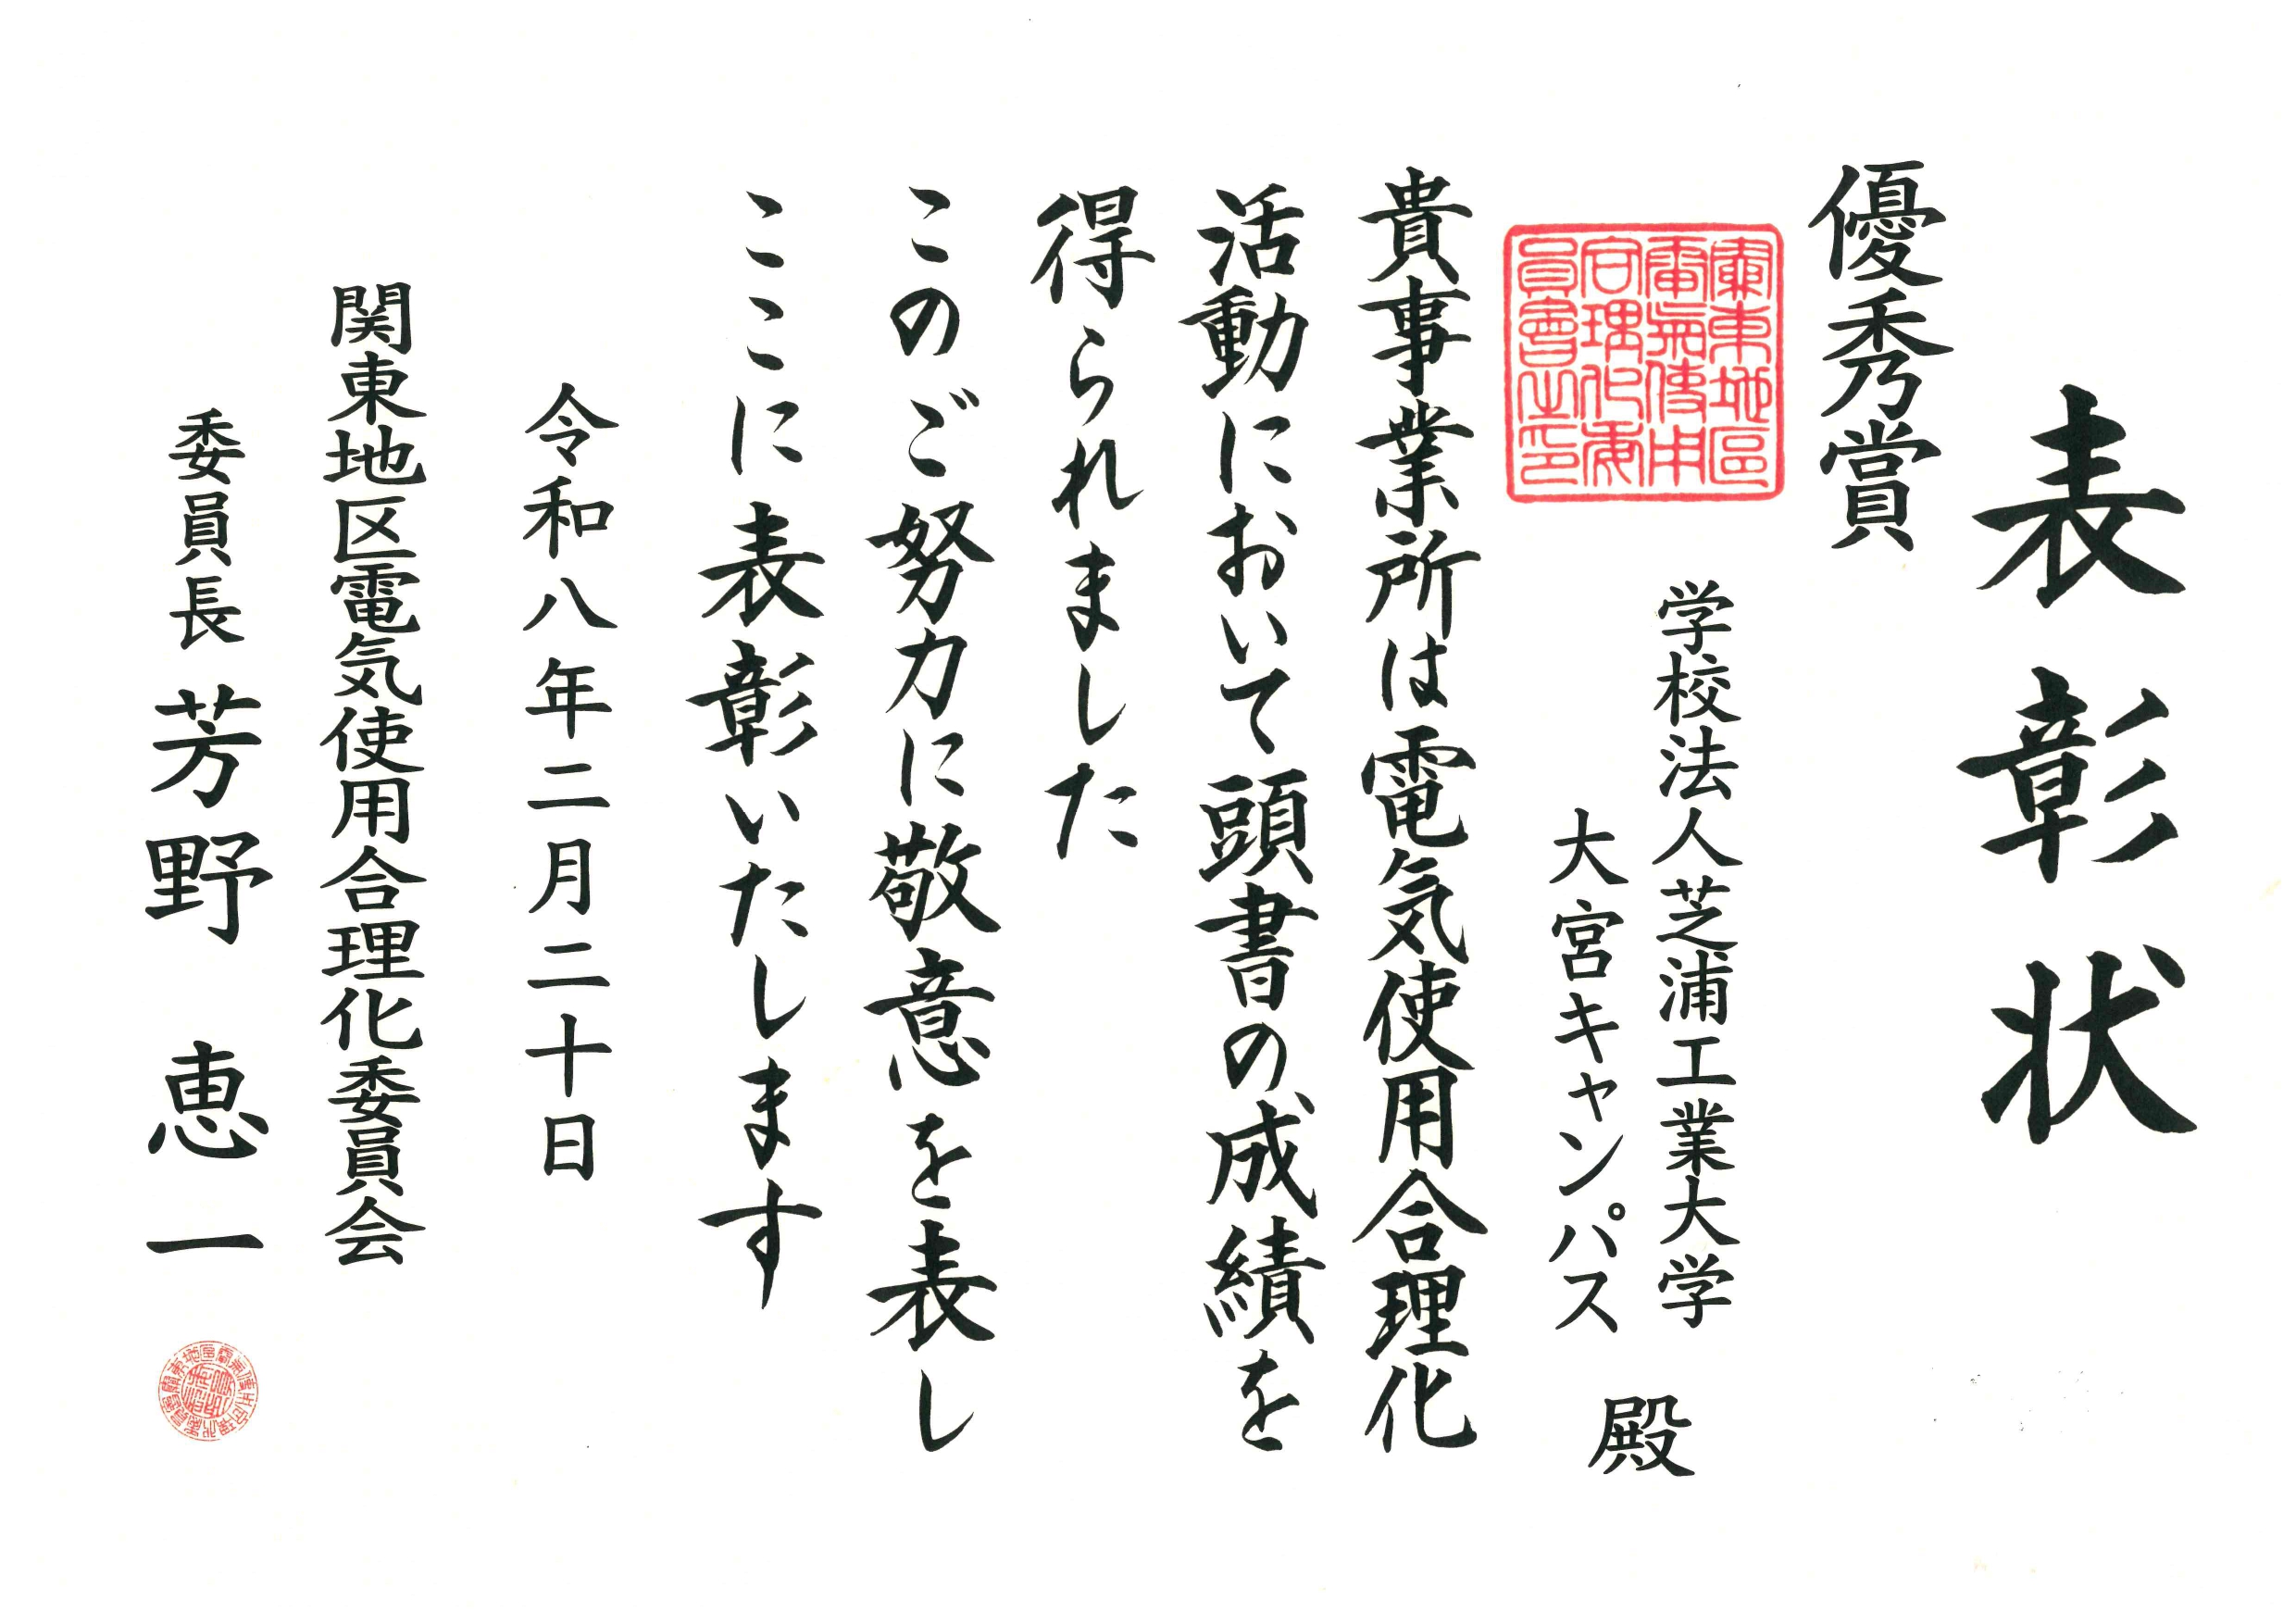 表彰状
優秀賞
学校法人芝浦工業大学
大宮キャンパス
殿
貴事業所は電気使用合理化
活動において頭書の成績を
得られました
このご努力に敬意を表し
ここに表彰いたします
令和八年二月二十日
関東地区電気使用合理化委員会
委員長 芳野 恵一
關東地區
電氣使用
合理化委
員會之印